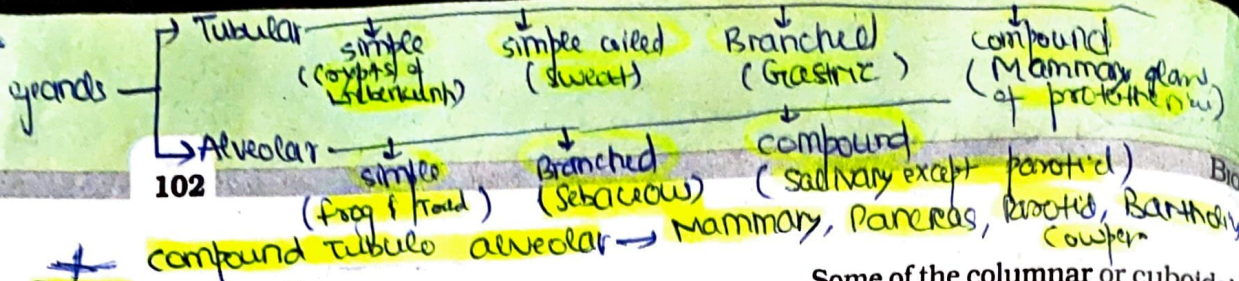 glands
Tubular
simple
(crypts of
simple coiled
(sweat)
Branched
(Gastric)
compound
(Mammary gland
of prototherian)
Alveolar
simple
(frog & Toad)
Branched
(Sebaceous)
compound
(salivary except parotid)
102
compound Tubulo alveolar → Mammary, Pancreas, Parotid,
Cowper
Some of the columnar or cuboid